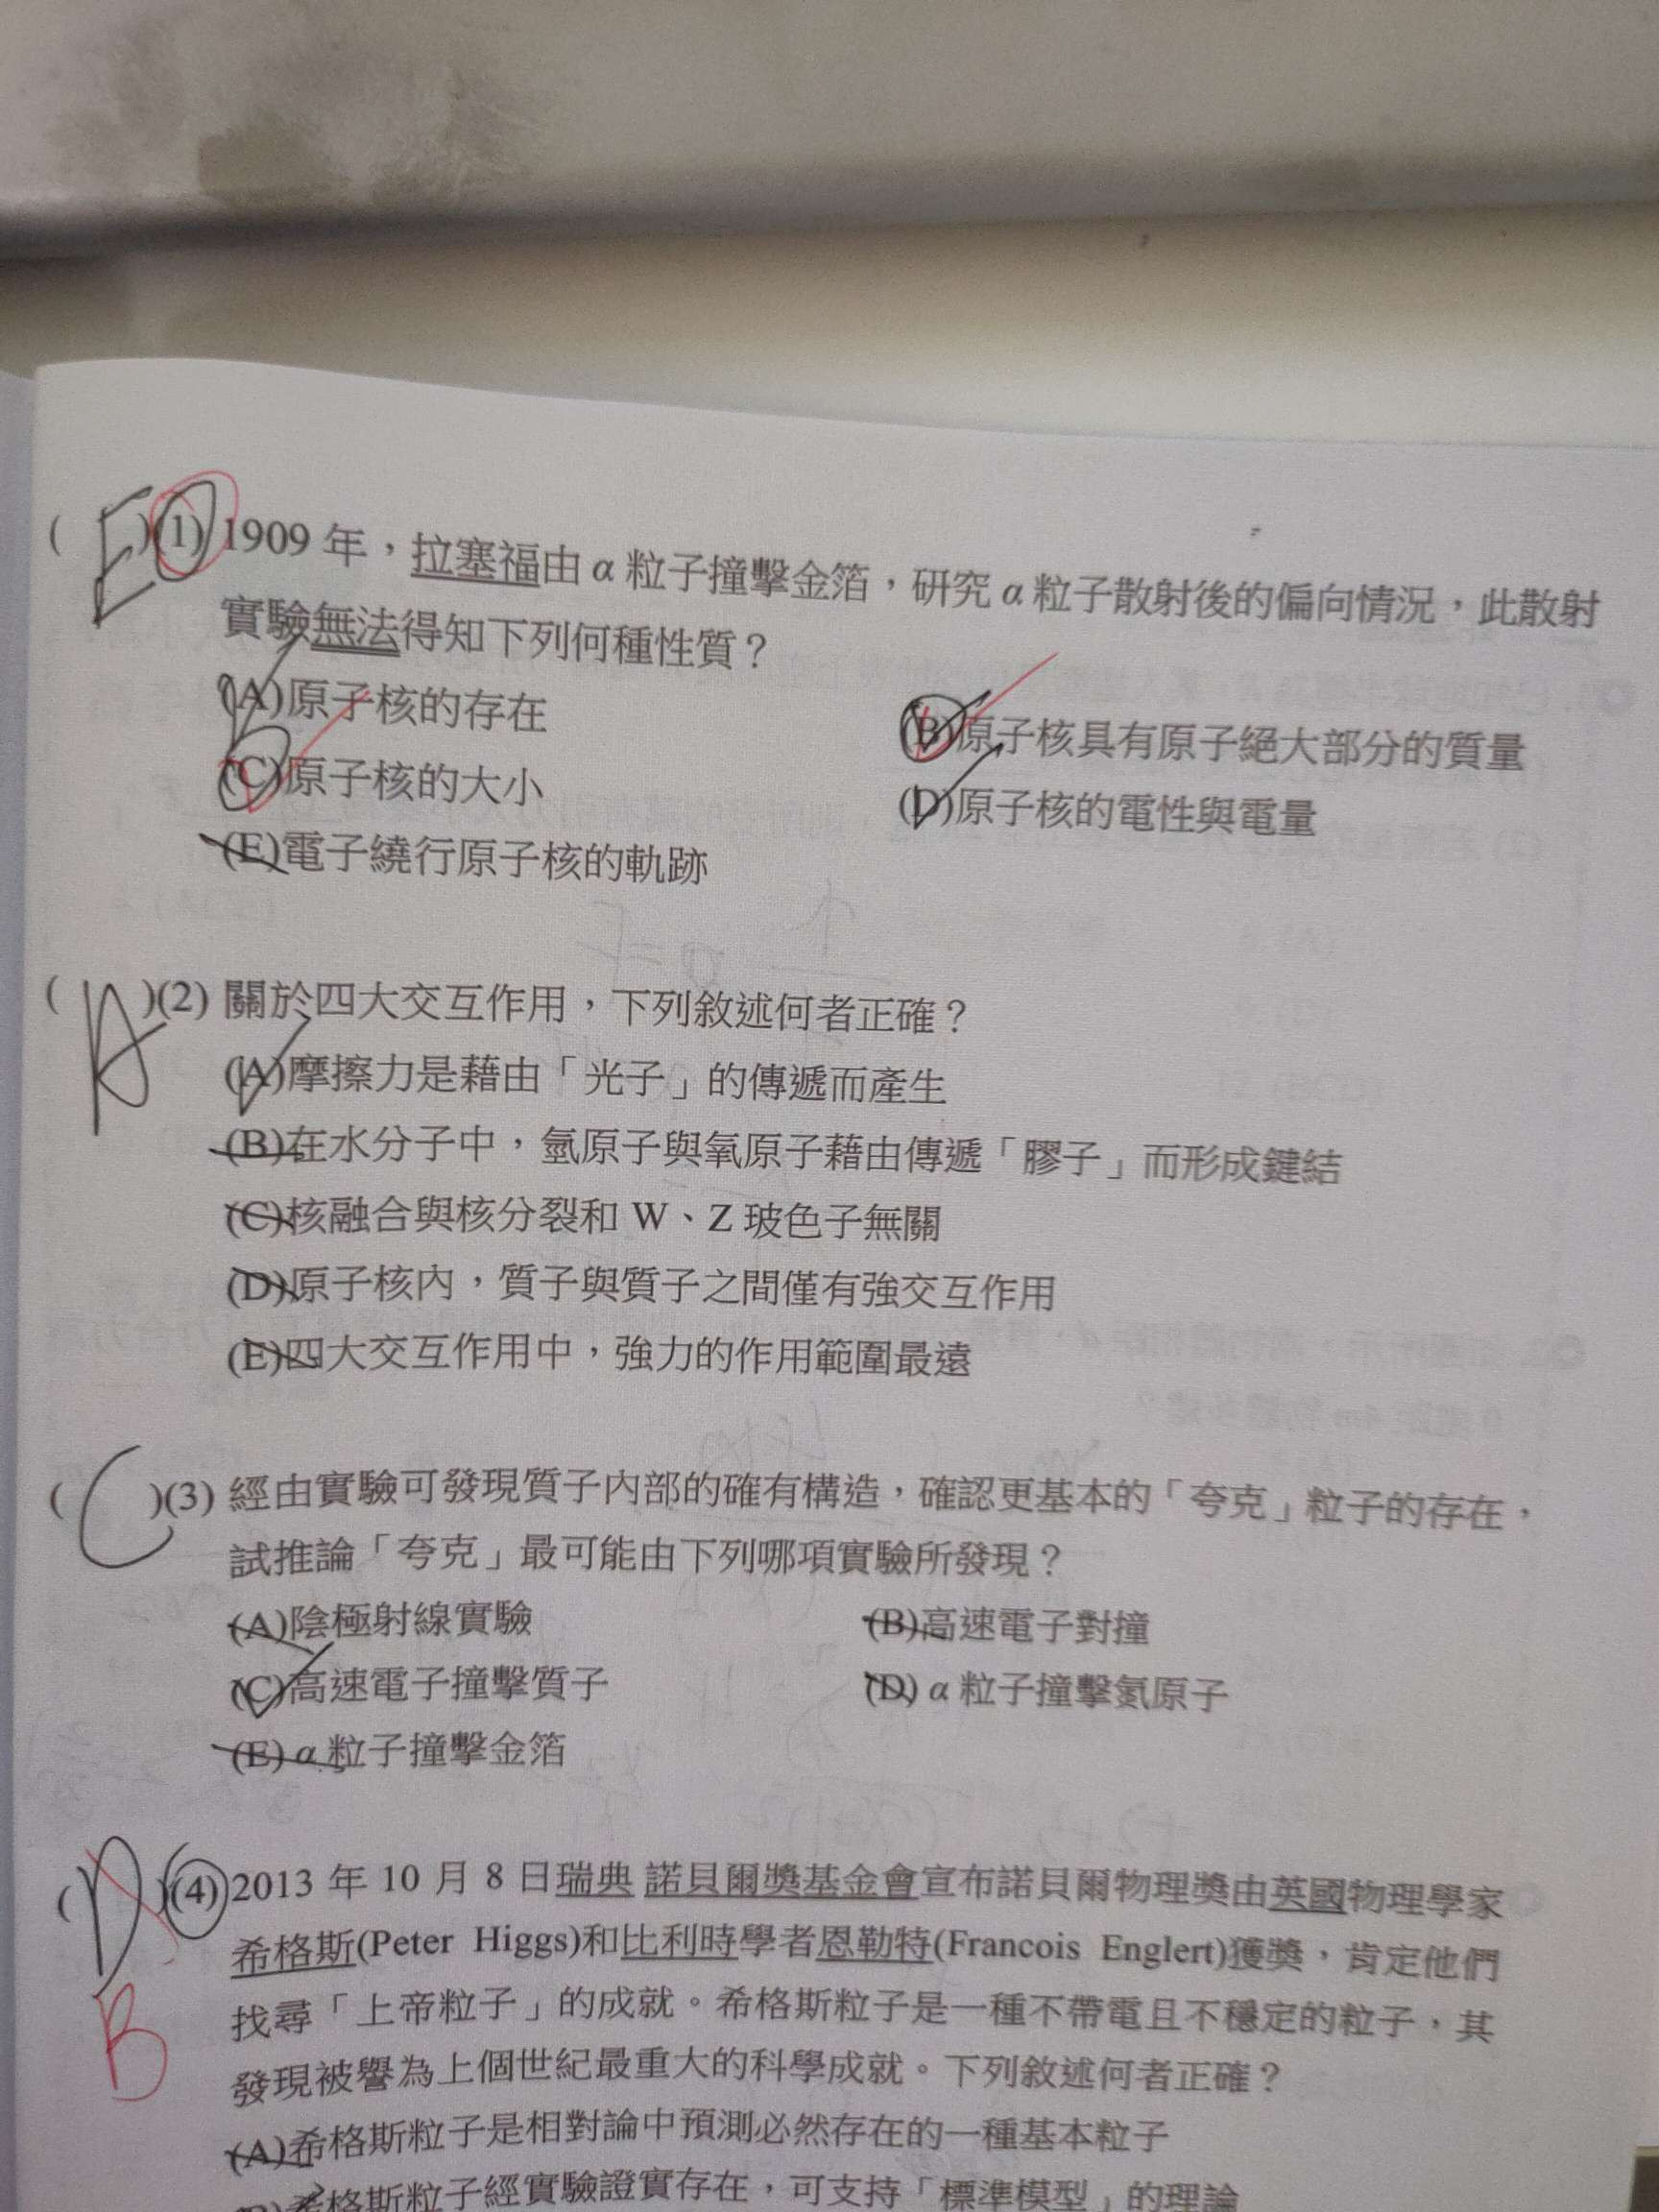 ( E )(1) 1909 年，拉塞福由 α 粒子撞擊金箔，研究 α 粒子散射後的偏向情況，此散射
實驗無法得知下列何種性質？
(A)原子核的存在 (B)原子核具有原子絕大部分的質量
(C)原子核的大小 (D)原子核的電性與電量
(E)電子繞行原子核的軌跡
( A )(2) 關於四大交互作用，下列敘述何者正確？
(A)摩擦力是藉由「光子」的傳遞而產生
(B)在水分子中，氫原子與氧原子藉由傳遞「膠子」而形成鍵結
(C)核融合與核分裂和 W、Z 玻色子無關
(D)原子核內，質子與質子之間僅有強交互作用
(E)四大交互作用中，強力的作用範圍最遠
( C )(3) 經由實驗可發現質子內部的確有構造，確認更基本的「夸克」粒子的存在，
試推論「夸克」最可能由下列哪項實驗所發現？
(A)陰極射線實驗 (B)高速電子對撞
(C)高速電子撞擊質子 (D) α 粒子撞擊氮原子
(E) α 粒子撞擊金箔
( D )(4) 2013 年 10 月 8 日瑞典 諾貝爾獎基金會宣布諾貝爾物理獎由英國物理學家
希格斯(Peter Higgs)和比利時學者恩勒特(Francois Englert)獲獎，肯定他們
B
找尋「上帝粒子」的成就。希格斯粒子是一種不帶電且不穩定的粒子，其
發現被譽為上個世紀最重大的科學成就。下列敘述何者正確？
(A)希格斯粒子是相對論中預測必然存在的一種基本粒子
(B)希格斯粒子經實驗證實存在，可支持「標準模型」的理論